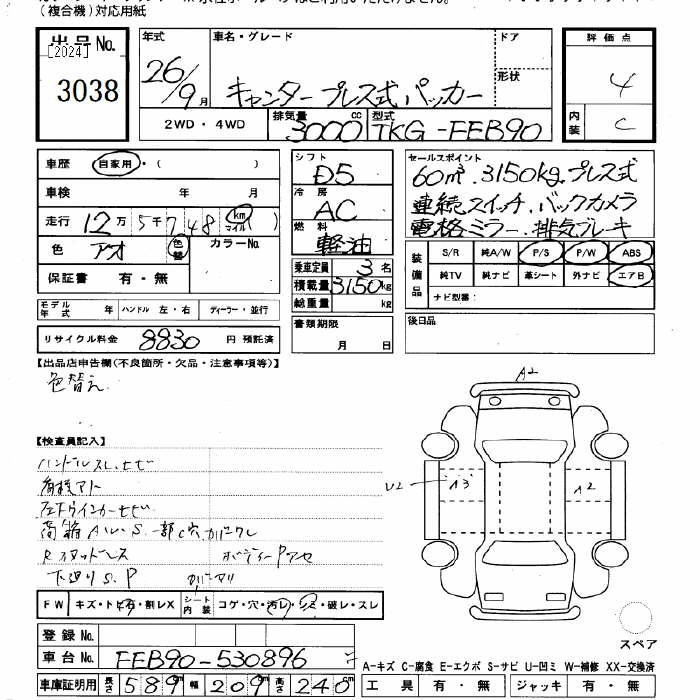 (複合機)対応用紙
出品No.
[2024]
3038
年式
26/9月
車名・グレード
キャンター プレス式 パッカー
ドア
形状
評価点
4
内装
C
2WD・4WD
排気量
3000cc
型式
TKG-FEB90
車歴 自家用・( )
車検 年 月
走行 12万5千748 km マイル ( )
色 アオ 色替 カラーNo.
保証書 有・無
モデル年式 年 ハンドル 左・右 ディーラー・並行
リサイクル料金 8830 円 預託済
シフト
D5
冷房
AC
燃料
軽油
乗車定員 3名
積載量 3150kg
総重量 kg
書類期限
月 日
セールスポイント
60m³ 3150kg プレス式
連続スイッチ.バックカメラ
電格ミラー.排気ブレーキ
装備品
S/R 純A/W P/S P/W ABS
純TV 純ナビ 革シート 外ナビ エアB
ナビ型番:
後日品
【出品店申告欄(不良箇所・欠品・注意事項等)】
色替え
【検査員記入】
ハンドルスレ.セビ
下廻りS.P
FW キズ・トビ石・割レX シート内装 コゲ・穴・汚レ・シミ・破レ・スレ
登録No.
車台No. FEB90-530896
車庫証明用 長さ 589cm 幅 209cm 高さ 240cm
A2
U2
A3
A2
スペア
A-キズ C-腐食 E-エクボ S-サビ U-凹ミ W-補修 XX-交換済
工具 有・無 ジャッキ 有・無